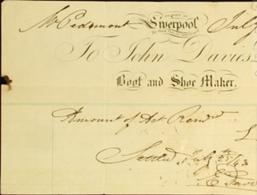 Mr Piedmont Liverpool July
To John Davies
Boot and Shoe Maker.
Amount of Act Rend
Settled July 25th/43
E Davi